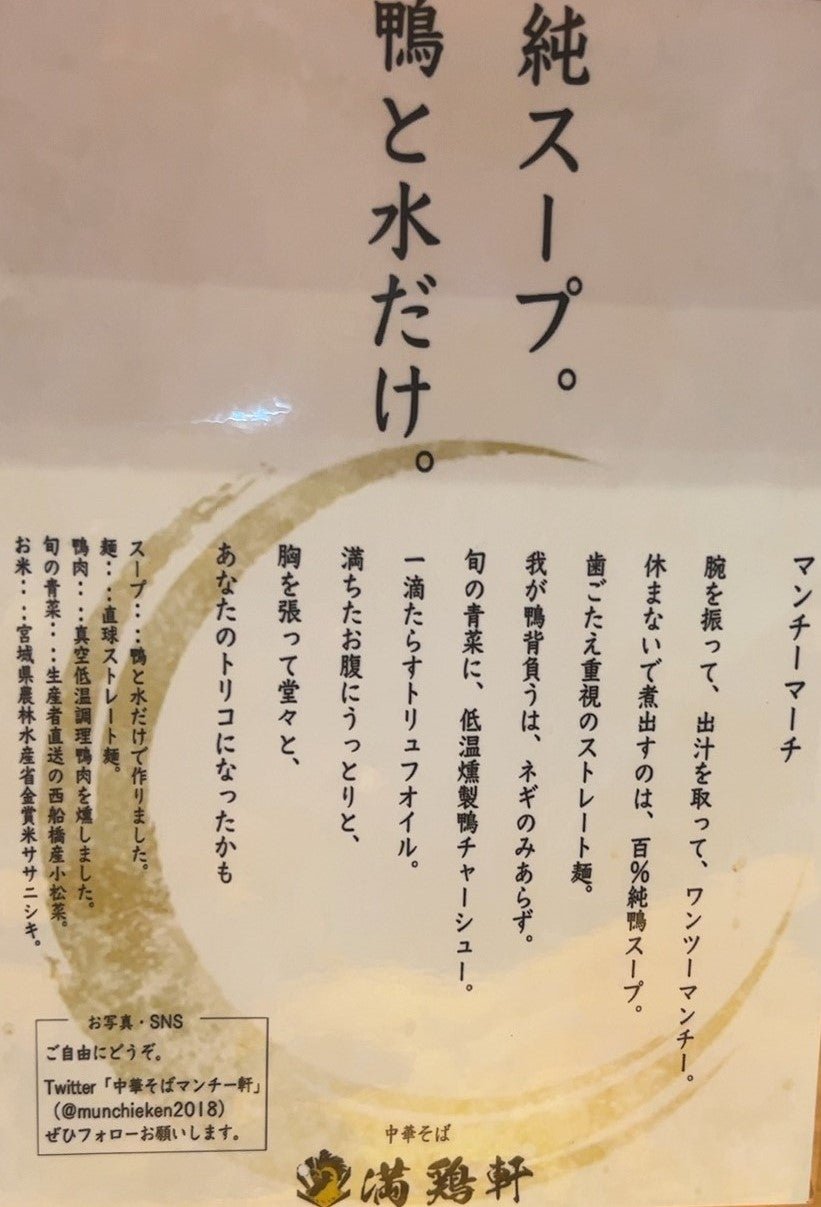 純スープ。
鴨と水だけ。
マンチーマーチ
腕を振って、出汁を取って、ワンツーマンチー。
休まないで煮出すのは、百%純鴨スープ。
歯ごたえ重視のストレート麺。
我が鴨背負うは、ネギのみあらず。
旬の青菜に、低温燻製鴨チャーシュー。
一滴たらすトリュフオイル。
満ちたお腹にうっとりと、
胸を張って堂々と、
あなたのトリコになったかも
スープ：：鴨と水だけで作りました。
麺：：直球ストレート麺。
鴨肉：：真空低温調理鴨肉を燻しました。
旬の青菜：：生産者直送の西船橋産小松菜。
お米：：宮城県農林水産省金賞米ササニシキ。
お写真・SNS
ご自由にどうぞ。
Twitter「中華そばマンチー軒」
（@munchieken2018）
ぜひフォローお願いします。
中華そば
満鶏軒